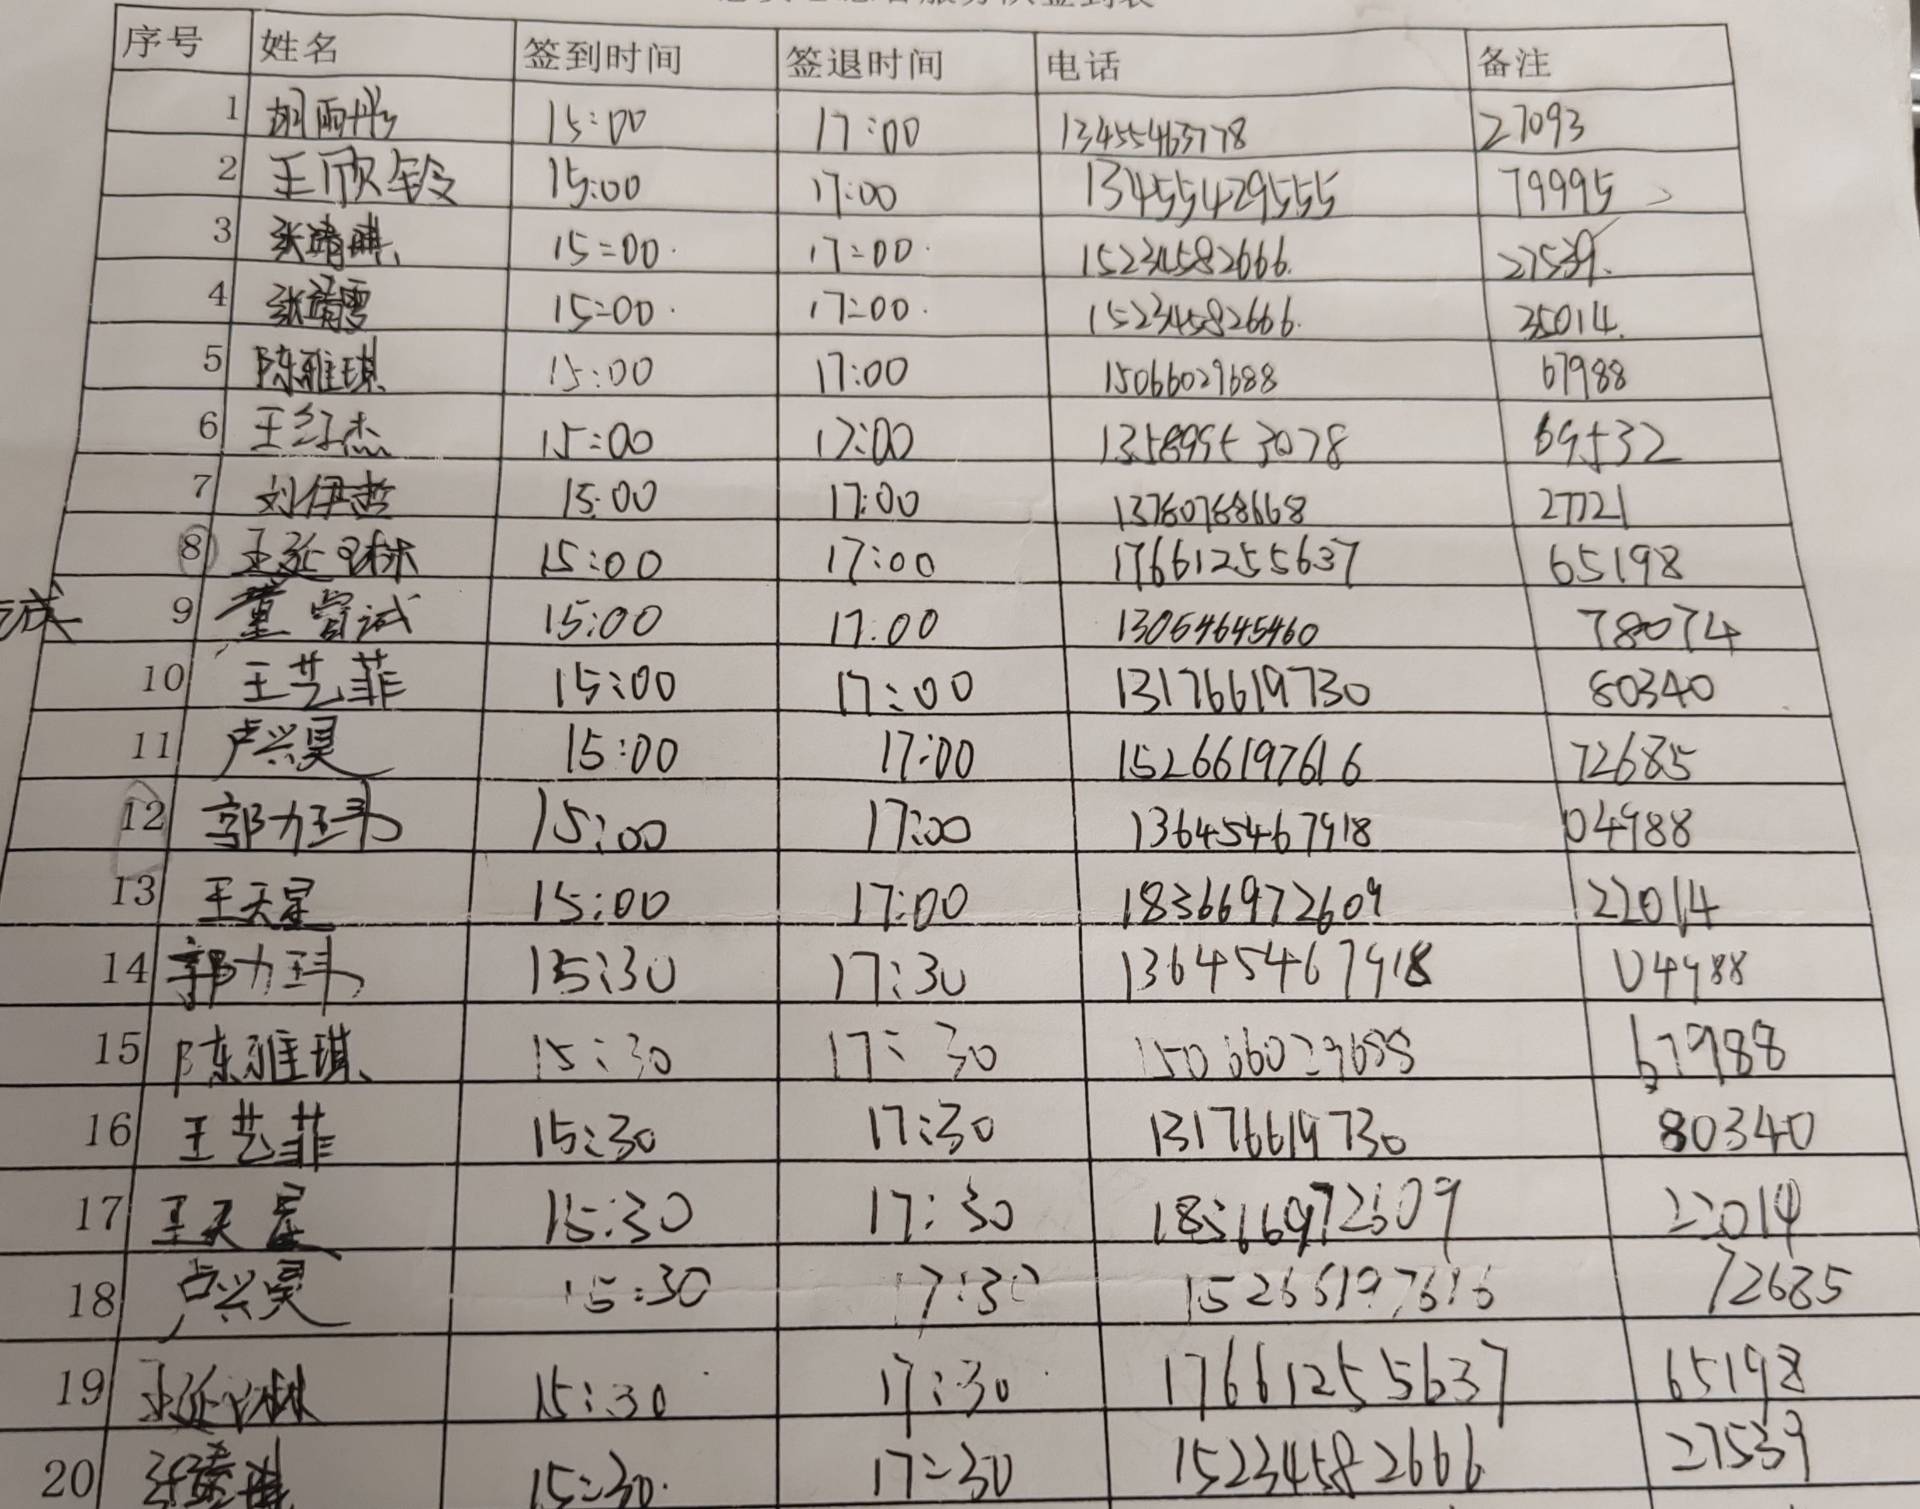 序号 姓名 签到时间 签退时间 电话 备注
1 胡雨彤 15:00 17:00 13455463778 27093
2 王欣铃 15:00 17:00 13455429555 79995
3 张靖琪 15:00 17:00 15234582666 27539
4 张靖雯 15:00 17:00 15234582666 35014
5 陈雅琪 15:00 17:00 15066029688 67988
6 王红杰 15:00 17:00 13589953078 69532
7 刘伊哲 15:00 17:00 13780788668 27721
8 王延琳 15:00 17:00 17661255637 65198
9 董尝试 15:00 17:00 13054645460 78074
10 王艺菲 15:00 17:00 13176619730 80340
11 卢兴昊 15:00 17:00 15266197616 72685
12 郭力玮 15:00 17:00 13645467918 04988
13 王天星 15:00 17:00 18366972609 22014
14 郭力玮 15:30 17:30 13645467918 04988
15 陈雅琪 15:30 17:30 15066029688 67988
16 王艺菲 15:30 17:30 13176619730 80340
17 王天星 15:30 17:30 18366972609 22014
18 卢兴昊 15:30 17:30 15266197616 72685
19 王延琳 15:30 17:30 17661255637 65198
20 15:30 17:30 15234582666 27539